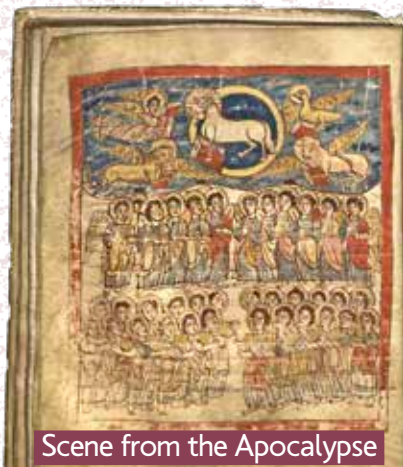 Scene from the Apocalypse